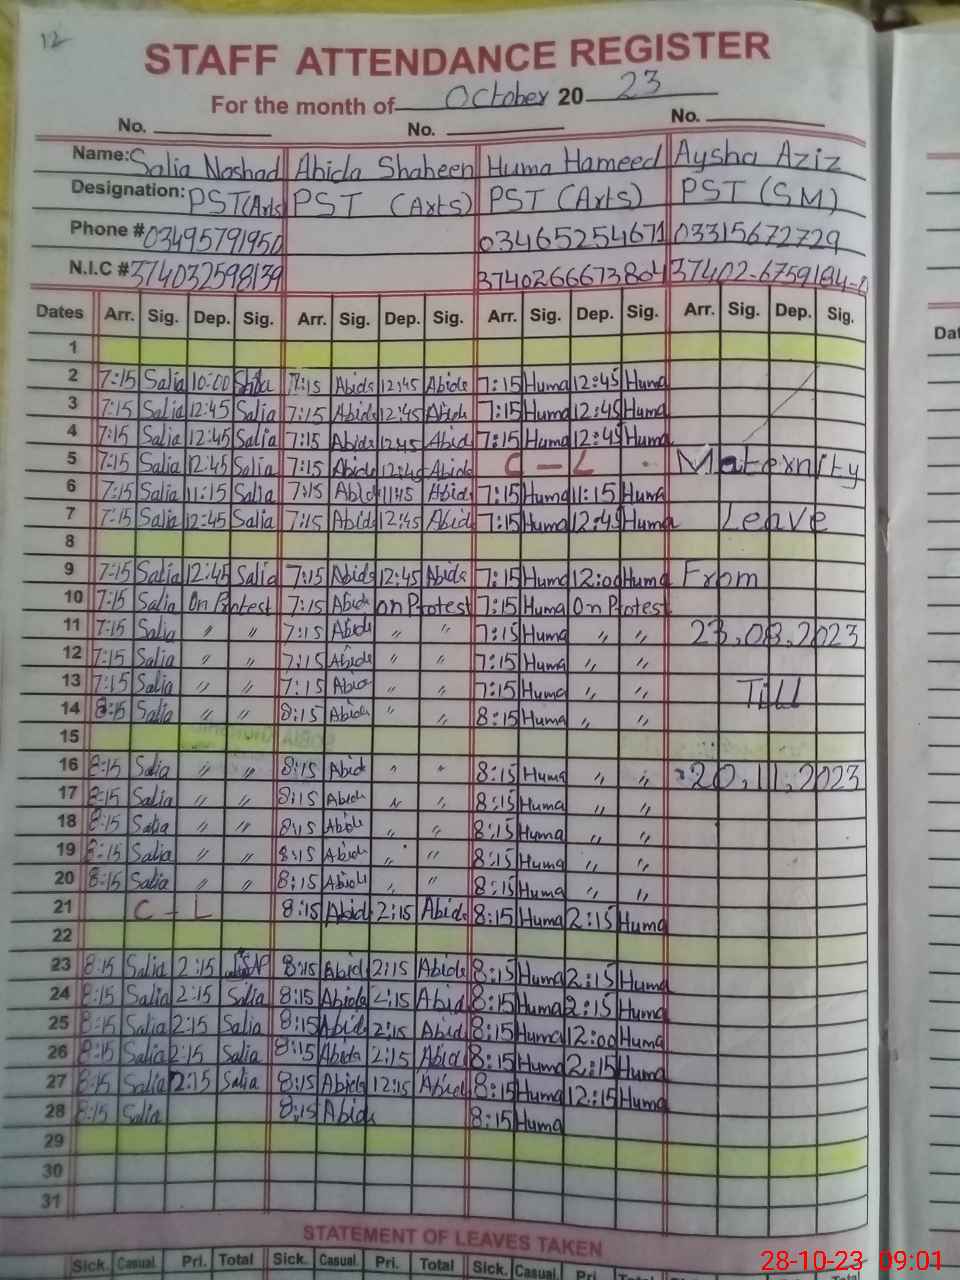 12
STAFF ATTENDANCE REGISTER
For the month of October 2023
No. No. No.
Name: Salia Noshad Abida Shaheen Huma Hameed Aysha Aziz
Designation: PST(Arts PST (Arts) PST (Arts) PST (SM)
Phone # 03495791950 03465254671 03315672729
N.I.C # 374032598139 3740266673804 37402-6759184-
Dates Arr. Sig. Dep. Sig. Arr. Sig. Dep. Sig. Arr. Sig. Dep. Sig. Arr. Sig. Dep. Sig.
1
2 7:15 Salia 10:00 7:15 Abida 12:45 Abida 7:15 Huma 12:45 Huma
3 7:15 Salia 12:45 Salia 7:15 Abida 12:45 Abida 7:15 Huma 12:45 Huma
4 7:15 Salia 12:45 Salia 7:15 Abida 12:45 Abid 7:15 Huma 12:45 Huma
5 7:15 Salia 12:45 Salia 7:15 Abida 12:45 Abida C - L Maternity
6 7:15 Salia 11:15 Salia 7:15 Abid 11:15 Abid 7:15 Huma 11:15 Huma
7 7:15 Salia 12:45 Salia 7:15 Abid 12:45 Abid 7:15 Huma 12:45 Huma Leave
8
9 7:15 Salia 12:45 Salia 7:15 Abida 12:45 Abida 7:15 Huma 12:00 Huma From
10 7:15 Salia On Protest 7:15 Abida on Protest 7:15 Huma On Protest
11 7:15 Salia " " 7:15 Abida " " 7:15 Huma " " 23.08.2023
12 7:15 Salia " " 7:15 Abida " " 7:15 Huma " "
13 7:15 Salia " " 7:15 Abida " " 7:15 Huma " " Till
14 8:15 Salia " " 8:15 Abida " " 8:15 Huma " "
15
16 8:15 Salia " " 8:15 Abid " " 8:15 Huma " " 20.11.2023
17 8:15 Salia " " 8:15 Abida " " 8:15 Huma " "
18 8:15 Salia " " 8:15 Abida " " 8:15 Huma " "
19 8:15 Salia " " 8:15 Abida " " 8:15 Huma " "
20 8:15 Salia " " 8:15 Abida " " 8:15 Huma " "
21 C - L 8:15 Abid 2:15 Abida 8:15 Huma 2:15 Huma
22
23 8:15 Salia 2:15 8:15 Abid 2:15 Abida 8:15 Huma 2:15 Huma
24 8:15 Salia 2:15 Salia 8:15 Abida 2:15 Abid 8:15 Huma 2:15 Huma
25 8:15 Salia 2:15 Salia 8:15 Abida 2:15 Abid 8:15 Huma 12:00 Huma
26 8:15 Salia 2:15 Salia 8:15 Abida 2:15 Abida 8:15 Huma 2:15 Huma
27 8:15 Salia 12:15 Salia 8:15 Abida 12:15 Abid 8:15 Huma 12:15 Huma
28 8:15 Salia 8:15 Abida 8:15 Huma
29
30
31
STATEMENT OF LEAVES TAKEN
Sick. Casual Pri. Total Sick. Casual. Pri. Total Sick. Casual. Pri. Total Sick
28-10-23 09:01